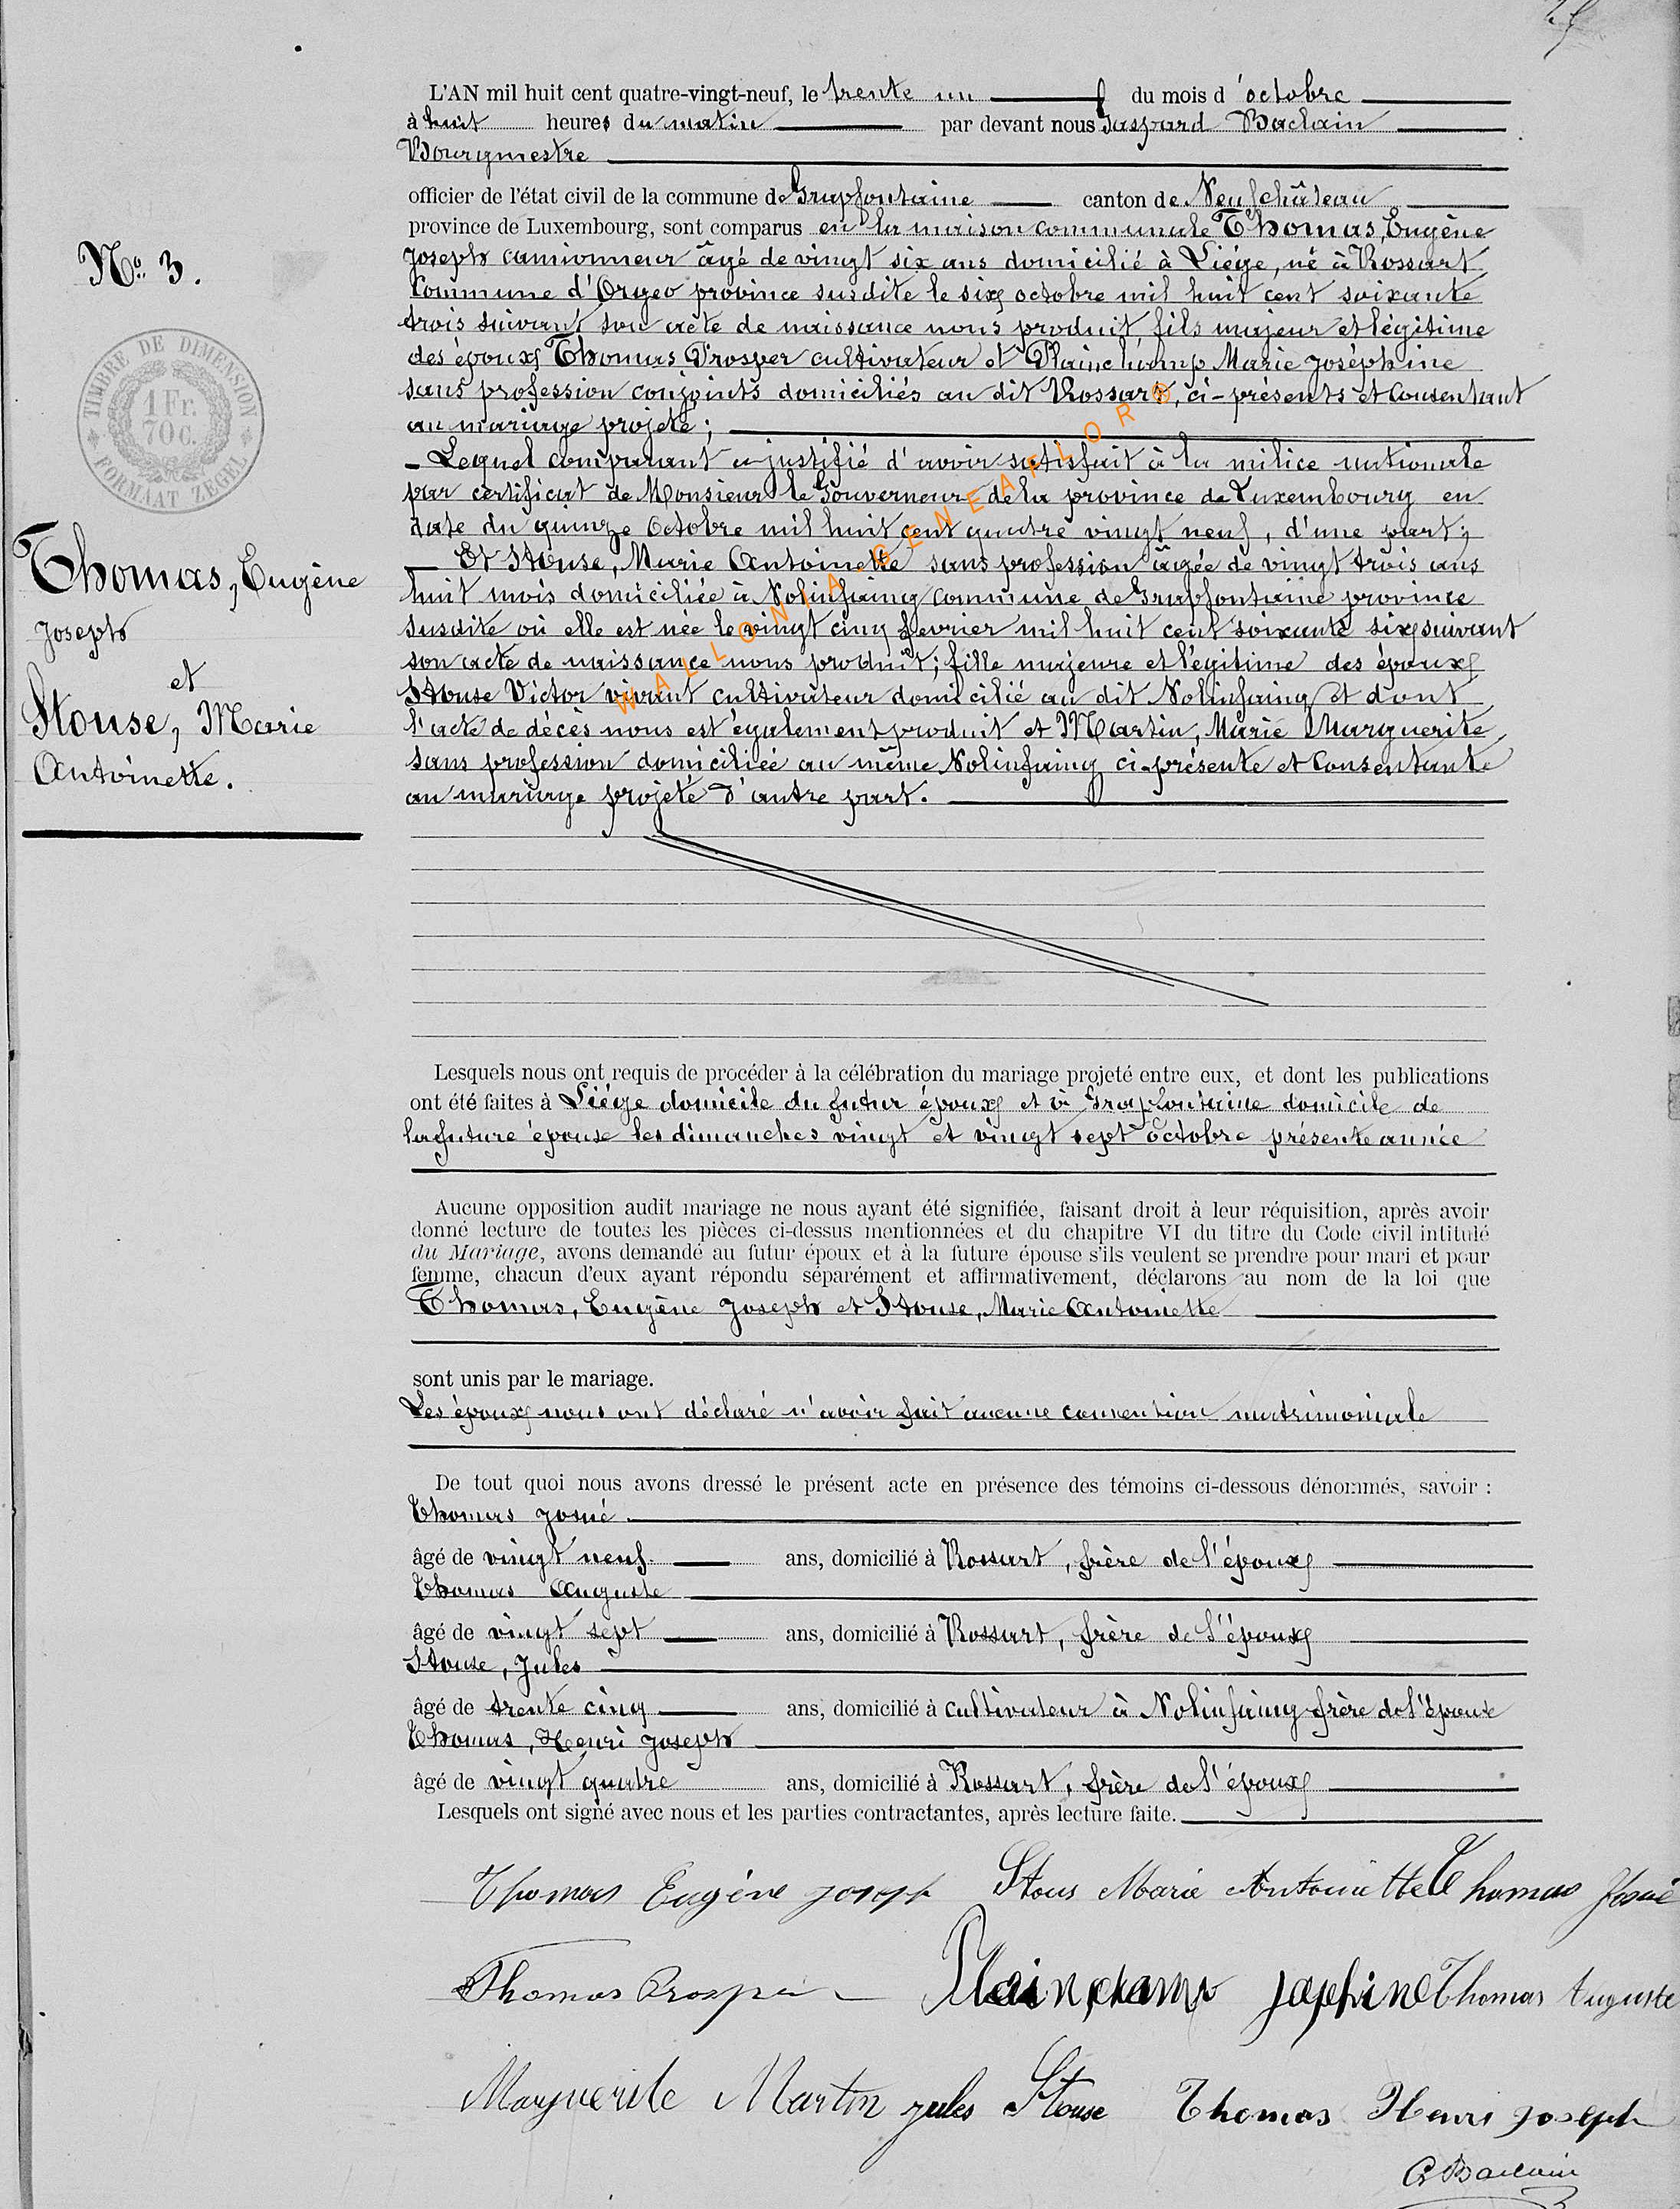 L'AN mil huit cent quatre-vingt-neuf, le trente un du mois d'octobre
à huit heures du matin par devant nous Gaspard Baclain
Bourgmestre
officier de l'état civil de la commune de Grapfontaine canton de Neufchâteau
province de Luxembourg, sont comparus en la maison communale Thomas, Eugène
Joseph camionneur âgé de vingt six ans domicilié à Liége, né à Rossart
Commune d'Orgeo province susdite le six octobre mil huit cent soixante
trois suivant son acte de naissance nous produit, fils majeur et légitime
des époux Thomas Prosper cultivateur et Plainchamp Marie Joséphine
sans profession conjoints domiciliés au dit Rossart, ci-présents et Consentant
au mariage projeté;
- Lequel comparant a justifié d'avoir satisfait à la milice nationale
par certificat de Monsieur le Gouverneur de la province de Luxembourg en
date du quinze Octobre mil huit cent quatre vingt neuf, d'une part;
— Et Stouse, Marie Antoinette sans profession âgée de vingt trois ans
huit mois domiciliée à Nolinfaing commune de Grapfontaine province
susdite où elle est née le vingt cinq février mil huit cent soixante six suivant
son acte de naissance nous produit; fille majeure et légitime des époux
Stouse Victor vivant cultivateur domicilié au dit Nolinfaing et dont
l'acte de décès nous est également produit et Martin, Marie Marguerite,
sans profession domiciliée au même Nolinfaing ci-présente et Consentante
au mariage projeté d'autre part.
WALLONIA-GENEAFLOR®
No. 3.
TIMBRE DE DIMENSION
1 Fr.
70 c.
FORMAAT ZEGEL
Thomas, Eugène
Joseph
et
Stouse, Marie
Antoinette.
Lesquels nous ont requis de procéder à la célébration du mariage projeté entre eux, et dont les publications
ont été faites à Liége domicile du futur époux et à Grapfontaine domicile de
la future épouse les dimanches vingt et vingt sept octobre présente année
Aucune opposition audit mariage ne nous ayant été signifiée, faisant droit à leur réquisition, après avoir
donné lecture de toutes les pièces ci-dessus mentionnées et du chapitre VI du titre du Code civil intitulé
du Mariage, avons demandé au futur époux et à la future épouse s'ils veulent se prendre pour mari et pour
femme, chacun d'eux ayant répondu séparément et affirmativement, déclarons au nom de la loi que
Thomas, Eugène Joseph et Stouse, Marie Antoinette
sont unis par le mariage.
Les époux nous ont déclaré n'avoir fait aucune convention matrimoniale
De tout quoi nous avons dressé le présent acte en présence des témoins ci-dessous dénommés, savoir :
Thomas Josué
âgé de vingt neuf ans, domicilié à Rossart, frère de l'époux
Thomas Auguste
âgé de vingt sept ans, domicilié à Rossart, frère de l'époux
Stouse, Jules
âgé de trente cinq ans, domicilié à cultivateur à Nolinfaing frère de l'épouse
Thomas, Henri Joseph
âgé de vingt quatre ans, domicilié à Rossart, frère de l'époux
Lesquels ont signé avec nous et les parties contractantes, après lecture faite.
Thomas Eugène Joseph Stous Marie Antoinette Thomas Josué
Thomas Prosper Plainchamp Josephine Thomas Auguste
Marguerite Martin Jules Stouse Thomas Henri Joseph
G Baclain